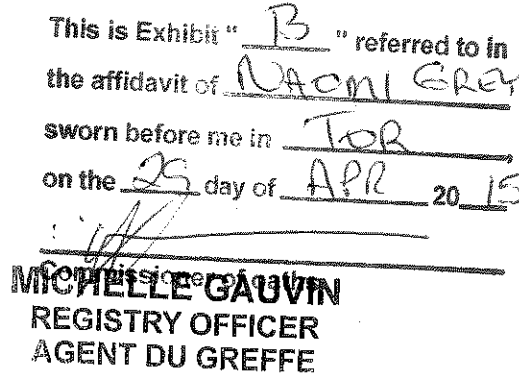 This is Exhibit " B " referred to in
the affidavit of NAOMI GREY
sworn before me in TOR
on the 29 day of APR 20 15
Commissioner of oaths
MICHELLE GAUVIN
REGISTRY OFFICER
AGENT DU GREFFE